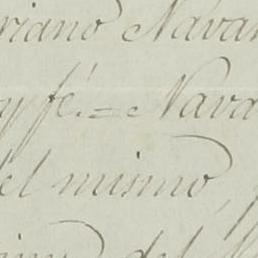 riano Nava
y fé.= Nava
el mismo,
del